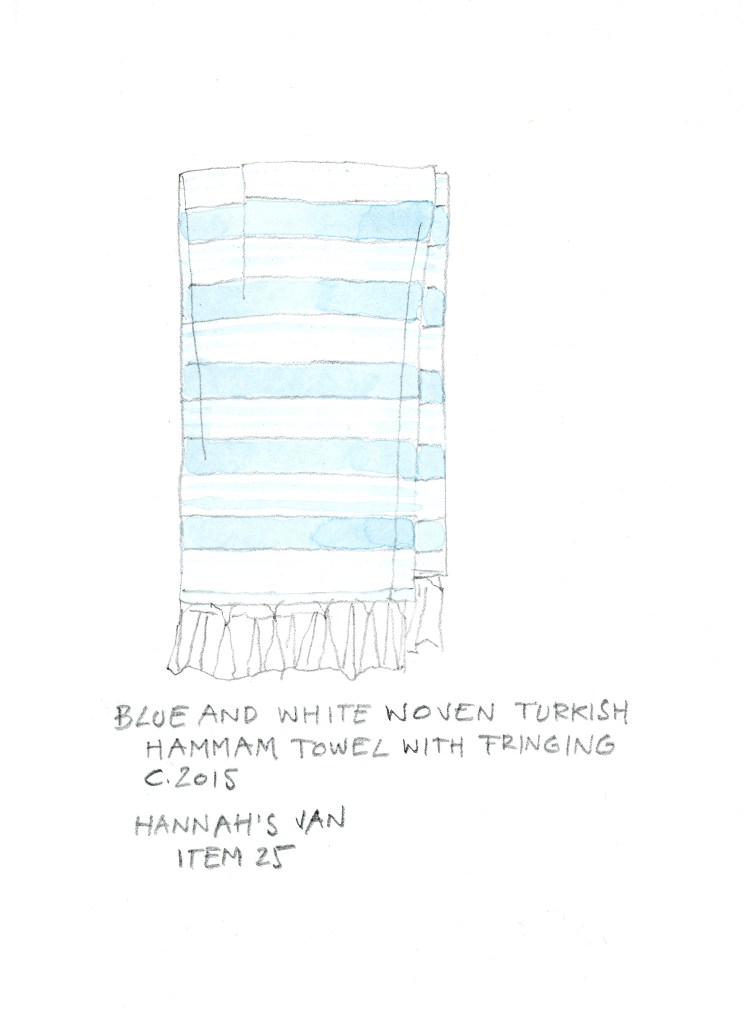 BLUE AND WHITE WOVEN TURKISH
HAMMAM TOWEL WITH FRINGING
C.2015
HANNAH'S VAN
ITEM 25